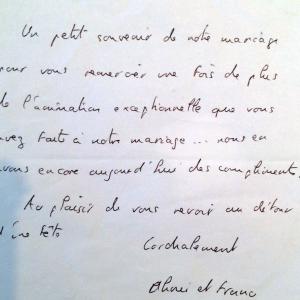 Un petit souvenir de notre mariage
pour vous remercier une fois de plus
de l'animation exceptionnelle que vous
avez fait à notre mariage... nous en
avons encore aujourd'hui des compliments.
Au plaisir de vous revoir au détour
d'une fête
Cordialement
et Franc